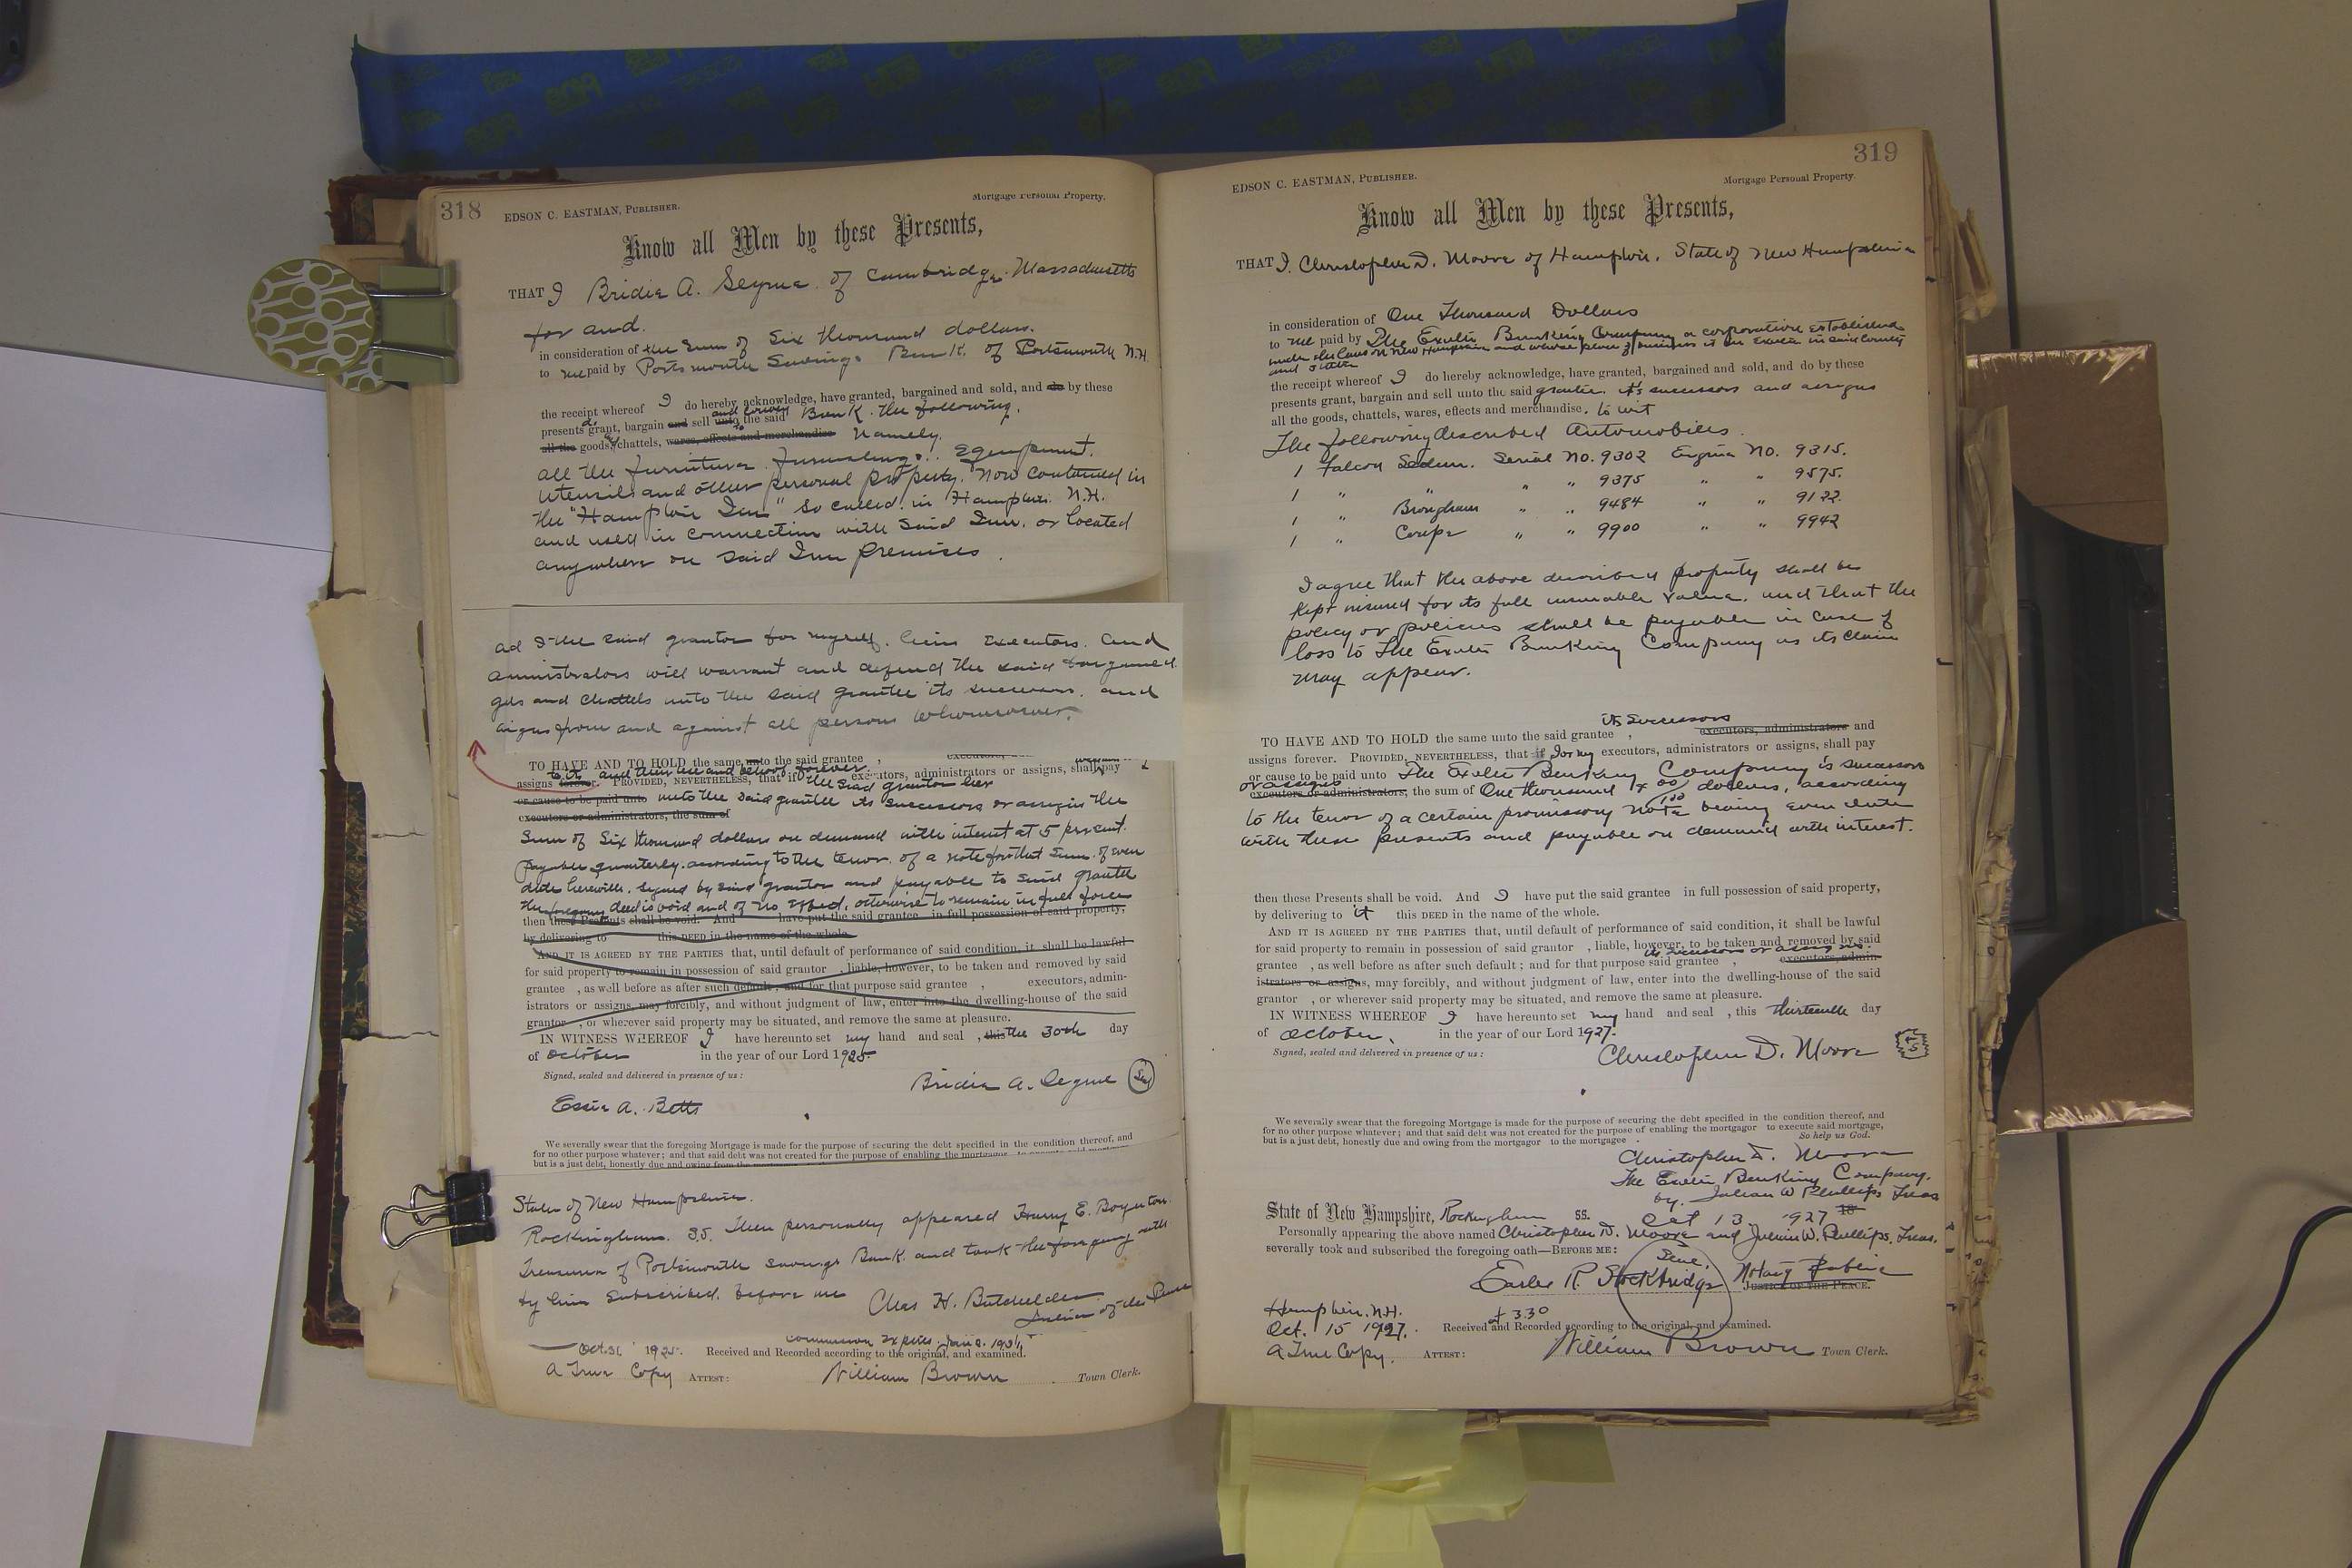 318
EDSON C. EASTMAN, PUBLISHER.
Mortgage Personal Property.
Know all Men by these Presents,
THAT I Bridie A. Segrue of Cambridge, Massachusetts
for and
in consideration of the sum of Six thousand dollars.
to me paid by Portsmouth Savings Bank of Portsmouth N.H.
the receipt whereof I do hereby acknowledge, have granted, bargained and sold, and do by these
presents do grant, bargain and sell and convey unto to the said Bank the following.
all the goods, and chattels, wares, effects and merchandise Namely.
all the furniture. furnishings. Equipment.
utensils and other personal property. Now contained in
the "Hampton Inn" so called. in Hampton N.H.
and used in connection with said Inn. or located
anywhere on said Inn premises.
ad I the said grantor for myself. heirs executors. and
aministrators will warrant and defend the said bargained
gds and chattels unto the said grantee its successors. and
asigns from and against all persons whomsoever.
TO HAVE AND TO HOLD the same unto the said grantee ,
to its and their use and behoof forever
assigns forever. PROVIDED, NEVERTHELESS, that if the said grantor her executors, administrators or assigns, shall pay
or cause to be paid unto unto the said grantee its successors or assigns the
executors or administrators, the sum of
Sum of Six thousand dollars on demand with interest at 5 per cent.
Payable quarterly. according to the tenor. of a note for that sum. of even
date herewith. signed by said grantor and payable to said grantee
the foregoing deed is void and of no effect. otherwise to remain in full force
then these Presents shall be void. And have put the said grantee in full possession of said property,
by delivering to this DEED in the name of the whole.
AND IT IS AGREED BY THE PARTIES that, until default of performance of said condition, it shall be lawful
for said property to remain in possession of said grantor , liable, however, to be taken and removed by said
grantee , as well before as after such default ; and for that purpose said grantee , executors, admin-
istrators or assigns, may forcibly, and without judgment of law, enter into the dwelling-house of the said
grantor , or wherever said property may be situated, and remove the same at pleasure.
IN WITNESS WHEREOF I have hereunto set my hand and seal , this the 30th day
of October in the year of our Lord 1925.
Signed, sealed and delivered in presence of us :
Bridie A. Segrue Seal
Essie A. Betts
We severally swear that the foregoing Mortgage is made for the purpose of securing the debt specified in the condition thereof, and
for no other purpose whatever ; and that said debt was not created for the purpose of enabling the mortgagor to execute said mortgage,
but is a just debt, honestly due and owing from the mortgagor
State of New Hampshire.
Rockingham. SS. Then personally appeared Harry E. Boynton.
Treasurer of Portsmouth Savings Bank. and took the foregoing oath
by him subscribed. before me
Chas H. Batchelder
Justice of the Peace
Commission Expires. Jan 9. 1931,
Oct. 31 1925. Received and Recorded according to the original, and examined.
A True Copy ATTEST: William Brown Town Clerk.
319
EDSON C. EASTMAN, PUBLISHER.
Mortgage Personal Property.
Know all Men by these Presents,
THAT I. Christopher D. Moore of Hampton. State of New Hampshire
in consideration of One Thousand Dollars
to me paid by The Exeter Banking Company a corporation established
under the laws of New Hampshire and whose place of business is in Exeter in said County
and State
the receipt whereof I do hereby acknowledge, have granted, bargained and sold, and do by these
presents grant, bargain and sell unto the said grantee. its successors and assigns
all the goods, chattels, wares, effects and merchandise, to wit
The following described Automobiles.
1 Falcon Sedan. Serial No. 9302 Engine No. 9315.
1 " " " " 9375 " " 9575.
1 " Brougham " " 9484 " " 9122.
1 " Coupe " " 9900 " " 9942
I agree that the above described property shall be
kept insured for its full insurable value. and that the
policy or policies shall be payable in case of
loss to The Exeter Banking Company as its claim
may appear.
its successors
TO HAVE AND TO HOLD the same unto the said grantee , executors, administrators and
assigns forever. PROVIDED, NEVERTHELESS, that if I or my executors, administrators or assigns, shall pay
or cause to be paid unto The Exeter Banking Company is successors
or assigns
executors or administrators, the sum of One thousand x 00/100 dollars, according
to the tenor of a certain promissory note bearing even date
with these presents and payable on demand with interest.
then these Presents shall be void. And I have put the said grantee in full possession of said property,
by delivering to it this DEED in the name of the whole.
AND IT IS AGREED BY THE PARTIES that, until default of performance of said condition, it shall be lawful
for said property to remain in possession of said grantor , liable, however, to be taken and removed by said
its successors or assigns.
grantee , as well before as after such default ; and for that purpose said grantee , executors, admin-
istrators or assigns, may forcibly, and without judgment of law, enter into the dwelling-house of the said
grantor , or wherever said property may be situated, and remove the same at pleasure.
IN WITNESS WHEREOF I have hereunto set my hand and seal , this thirteenth day
of October, in the year of our Lord 1927.
Signed, sealed and delivered in presence of us :
Christopher D. Moore
We severally swear that the foregoing Mortgage is made for the purpose of securing the debt specified in the condition thereof, and
for no other purpose whatever ; and that said debt was not created for the purpose of enabling the mortgagor to execute said mortgage,
but is a just debt, honestly due and owing from the mortgagor to the mortgagee . So help us God.
Christopher D. Moore
The Exeter Banking Company.
by. Julian W Phillips Treas
State of New Hampshire, Rockingham SS. Oct 13. 1927 18
Personally appearing the above named Christopher D. Moore and Julian W. Phillips, Treas.
severally took and subscribed the foregoing oath—BEFORE ME :
Seal.
Earle R. Stockbridge Notary Public
JUSTICE OF THE PEACE.
Hampton. N.H.
Oct. 15 1927. at 3.30 Received and Recorded according to the original, and examined.
A True Copy. ATTEST: William Brown Town Clerk.